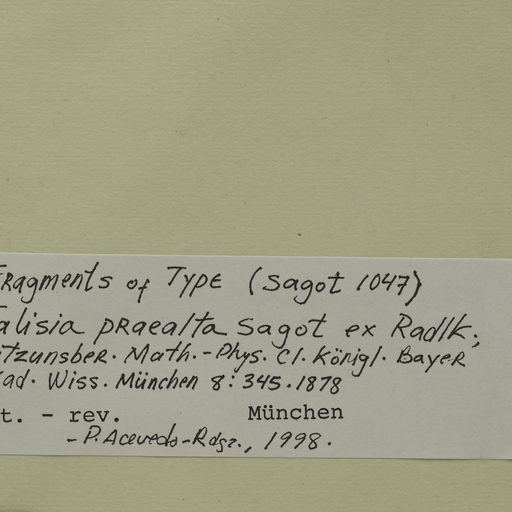 Fragments of Type (Sagot 1047)
Talisia praealta Sagot ex Radlk;
itzunsber. Math.-Phys. Cl. Königl. Bayer
kad. Wiss. München 8: 345. 1878
t. - rev. München
- P. Acevedo-Rdgz., 1998.